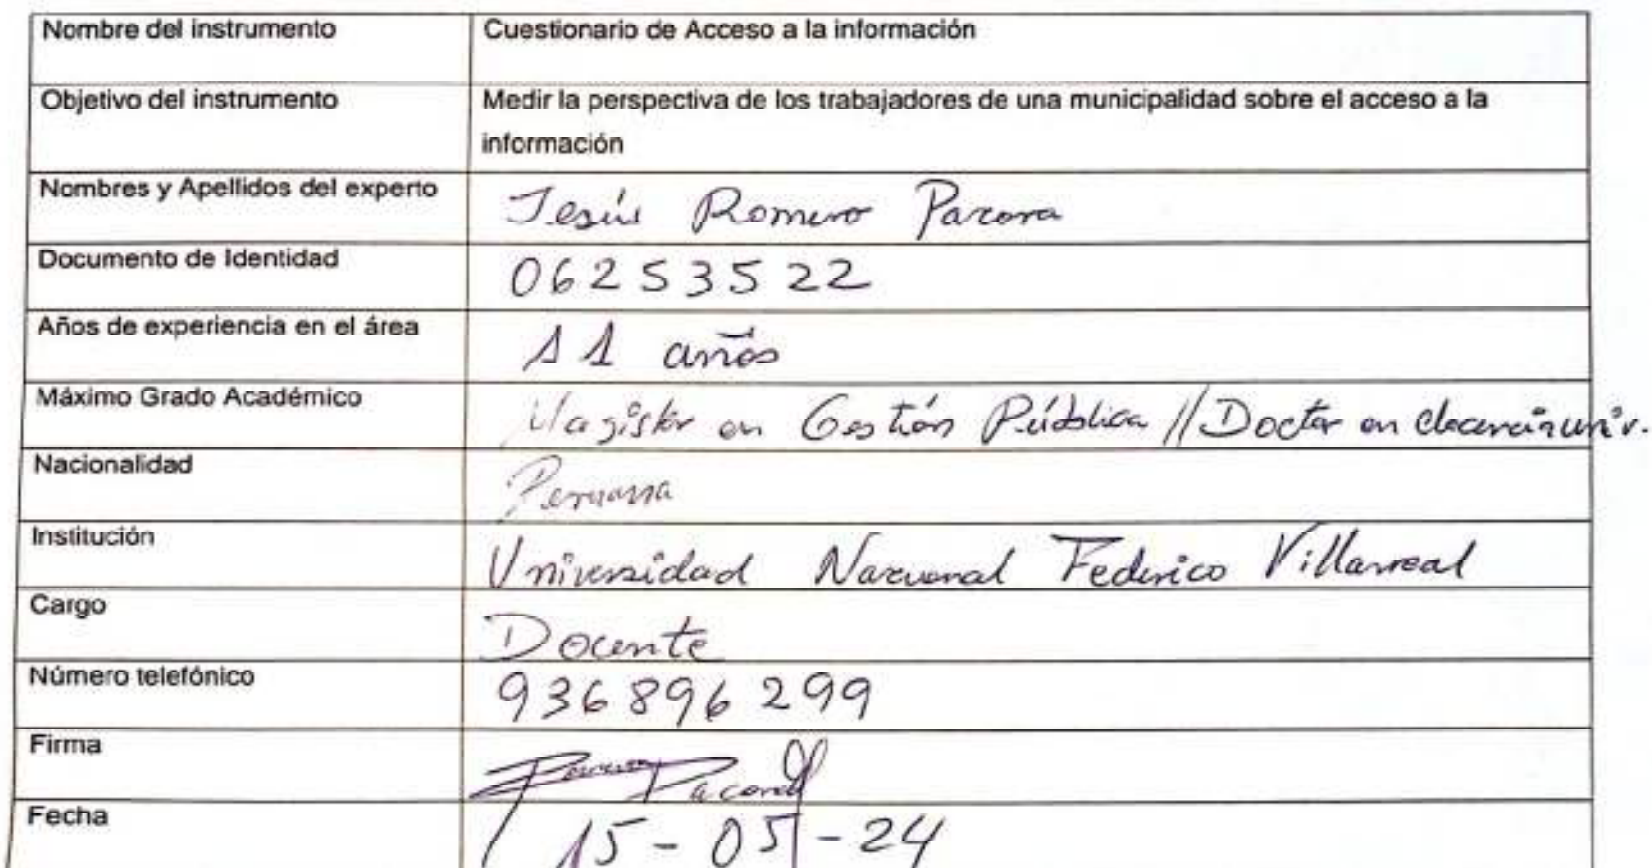 Nombre del instrumento Cuestionario de Acceso a la información
Objetivo del instrumento Medir la perspectiva de los trabajadores de una municipalidad sobre el acceso a la
información
Nombres y Apellidos del experto Jesús Romero Pacora
Documento de Identidad 06253522
Años de experiencia en el área 11 años
Máximo Grado Académico Magister en Gestión Pública // Doctor en docencia univ.
Nacionalidad Peruana
Institución Universidad Nacional Federico Villarreal
Cargo Docente
Número telefónico 936896299
Firma Romero Pacora
Fecha 15-05-24